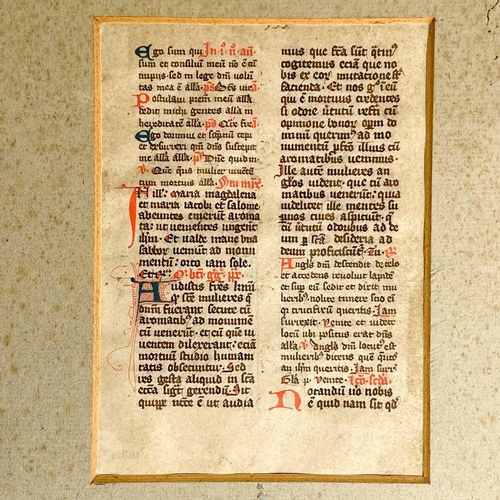 Ego sum qui In .i. n. an.
sum et consiliu meu no e cu
impiis sed in lege dni volu
tas mea e alla. ps Bts vir
Postulavi prem meu alla
dedit michi gentes alla in
hereditate alla. ps Qre fre
Ego dormivi et sopnu cepi
et resurrexi qm dns suscepit
me alla alla. ps Dne quid m
tum mortuis alla.
In ill. maria magdalena
et maria iacobi et salome
abeuntes emerut aroma
ta ut venientes ungerent
ihm. Et valde mane una
sabbor veniut ad monu
mentu orto iam sole.
Et rl.
Audistis fres kmi
q sce mulieres q
dnm fuerant secute cu
aromatib ad monume
tu venerut. et ei que vi
ventem dilexerant. etia
mortuu studio human
tatis obsecuntur. Sed
res gesta aliquid in sca
ecca sigt gerendu. Sic
quippe necce e ut audia
mus que fca sut qtin
cogitemus etia que no
bis ex eor imitatione st
facienda. Et nos g i eu
qui e mortuus credentes
si odore virtutu referti cu
opinione bonor opm do
minu querim ad mo
numentu pfcto illius cu
aromatibus venimus.
Ille aute mulieres an
glos vident. que cu aro
matibus venerut. quia
videlicet ille mentes su
pnos cives aspiciut. q
cu virtutu odoribus ad de
um p sca desideria ad
deum proficiscut.
Angls dni descendit de celo
et accedens revolvit lapide
et sup eu sedit et dixit mu
lierib. nolite timere scio ei
q crucifixu queritis. Iam
surrexit. venite et videte
locu ubi positus erat dns
alla. v Angls dni locut est
mulierib dicens que qritis
an ihm queritis. Iam surr
Gla p. venite. lco scda.
Notandu vo nobis
e quid nam sit qd